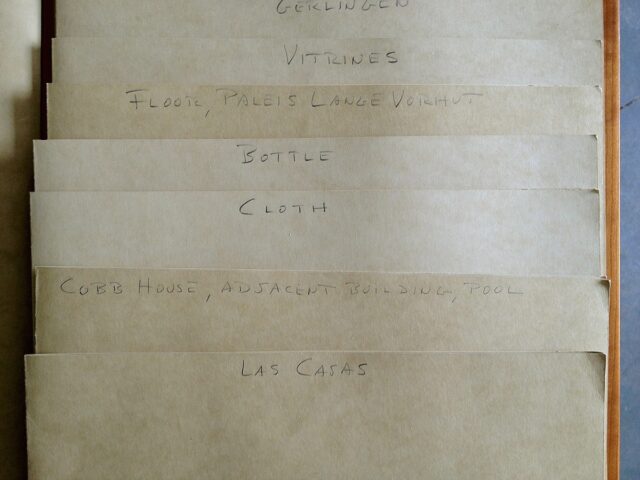 GERLINGEN
VITRINES
FLOOR, PALEIS LANGE VORHUT
BOTTLE
CLOTH
COBB HOUSE, ADJACENT BUILDING, POOL
LAS CASAS